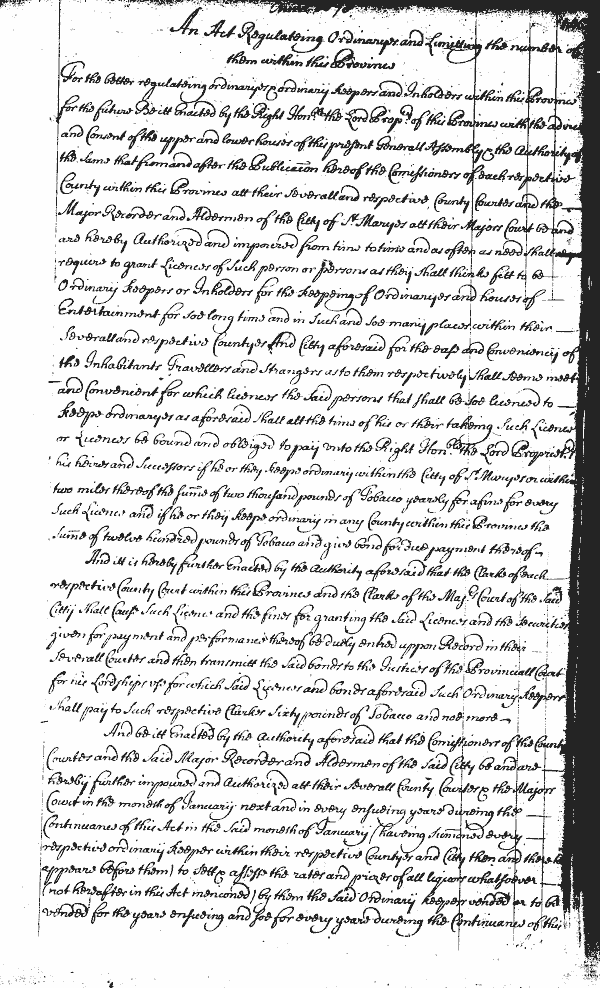 An Act Regulateing Ordinaryes and Limitting the number of
them within this Province
For the better regulateing ordinaryes & ordinary keepers and Inholders within this Province
for the future Be itt Enacted by the Right Honble the Lord Propr of this Province with the advice
and Consent of the upper and lower houses of this present Generall Assembly & the Authority of
the same that from and after the Publicacon hereof the Comissioners of each respective
County within this Province att their severall and respective County Courtes and the
Major Recorder and Aldermen of the Citty of St Maryes att their Majors Court be and
are hereby Authorized and impowred from time to time and as often as need shall
require to grant Licences of Such person or persons as they shall thinke fitt to be
Ordinary keepers or Inholders for the keepeing of Ordinaryes and houses of
Entertainment for soe long time and in Such and soe many places within their
Severall and respective Countyes And Citty aforesaid for the ease and Conveniency of
the Inhabitants Travellers and Strangers as to them respectively shall seeme meet
and Convenient for which licences the said persons that shall be soe licenced to
keepe ordinaryes as aforesaid shall att the time of his or their takeing Such Licence
or Licences be bound and obleiged to pay unto the Right Honble the Lord Proprietr
his heires and Successors if he or they keepe ordinary within the Citty of St Maryes or within
two miles thereof the sume of two thousand pounds of Tobacco yearely for a fine for every
Such Licence and if he or they keepe ordinary in any County within this Province the
Sume of twelve hundred pounds of Tobacco and give bond for due payment thereof
And itt is hereby further Enacted by the Authority aforesaid that the Clarke of each
respective County Court within this Province and the Clarke of the Majrs Court of the said
Citty Shall Cause Such Licence and the fines for granting the Said Licences and the securities
given for payment and performance thereof be duely entred uppon Record in their
Severall Courtes and then transmitt the Said bonds to the Justices of the Provinciall Court
for his Lordships use for which Said Licences and bonds aforesaid Such Ordinary keepers
shall pay to Such respective Clarkes Sixty pounds of Tobacco and noe more
And be itt Enacted by the Authority aforesaid that the Comissioners of the County
Courtes and the Said Major Recorder and Aldermen of the Said Citty be and are
hereby further impowred and Authorized att their Severall County Courtes & the Majors
Court in the moneth of January next and in every ensueing yeare dureing the
Continuance of this Act in the Said moneth of January (haveing Sumoned every
respective ordinary keeper within their respective Countyes and Citty then and there to
appeare before them) to sett & assesse the rates and prizes of all liquors whatsoever
(not hereafter in this Act mencioned) by them the said Ordinary keepers vended or to be
vended for the yeare ensueing and soe for every yeare dureing the Continuance of this